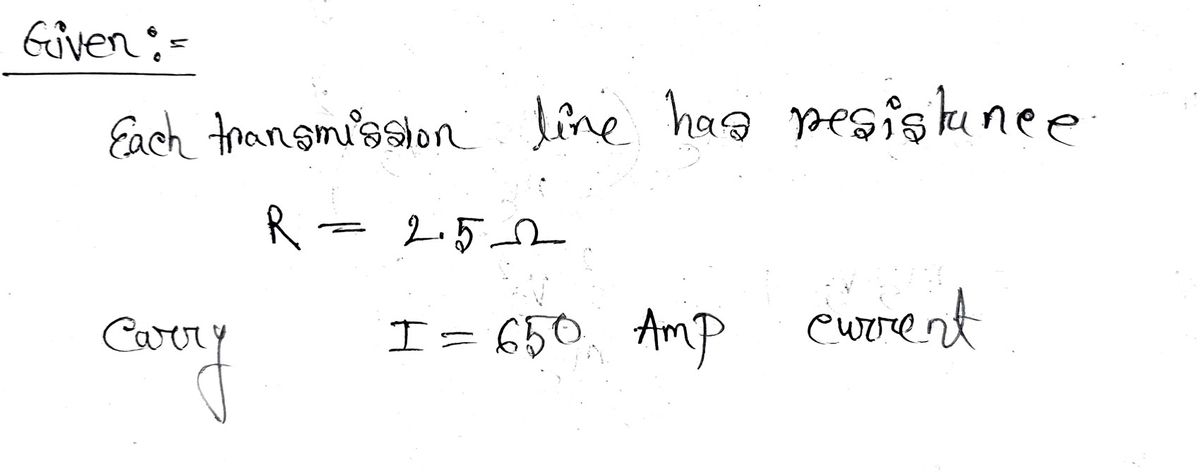 Given :-
Each transmission line has resistance
R = 2.5 Ω
Carry I = 650 Amp current